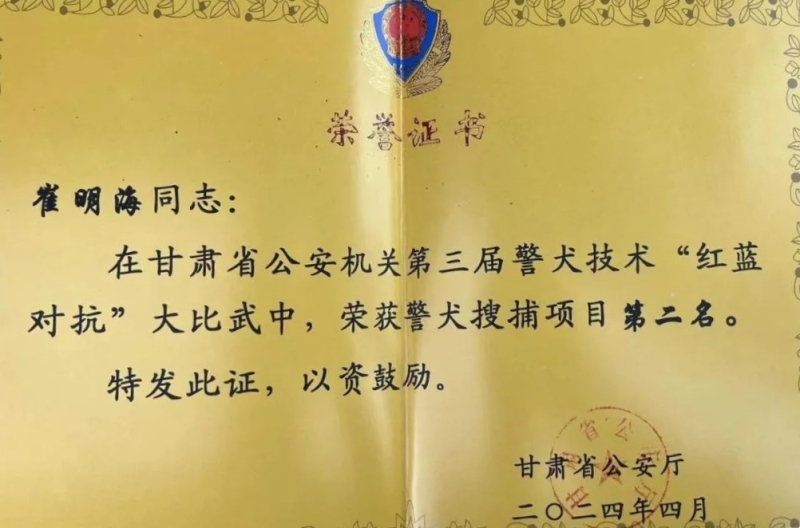 荣誉证书
崔明海同志：
在甘肃省公安机关第三届警犬技术“红蓝
对抗”大比武中，荣获警犬搜捕项目第二名。
特发此证，以资鼓励。
甘肃省公安厅
甘肃省公安厅
二〇二四年四月